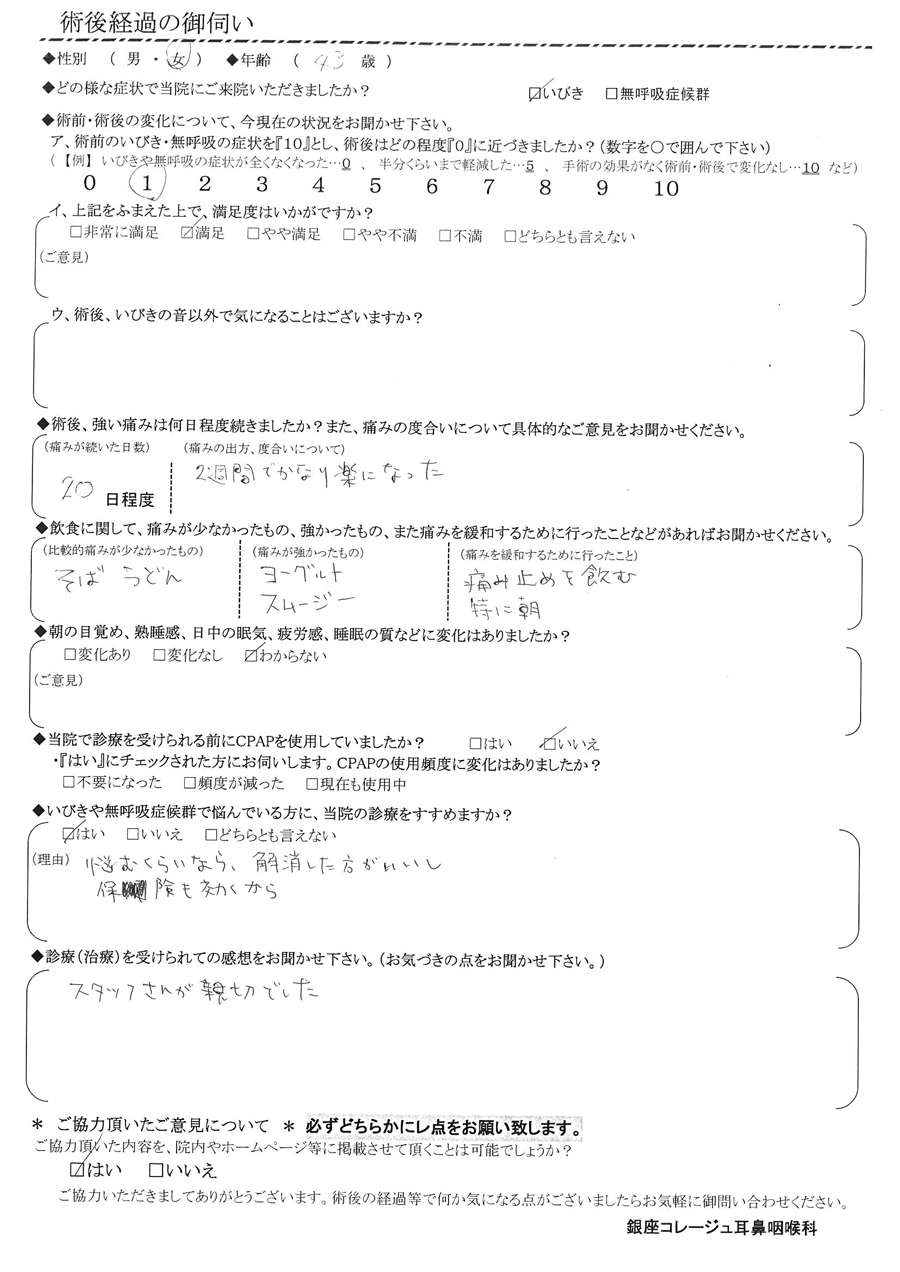 術後経過の御伺い
◆性別 ( 男 ・ 女 ) ◆年齢 ( 43 歳 )
◆どの様な症状で当院にご来院いただきましたか? ☑いびき □無呼吸症候群
◆術前・術後の変化について、今現在の状況をお聞かせ下さい。
ア、術前のいびき・無呼吸の症状を『10』とし、術後はどの程度『0』に近づきましたか?(数字を○で囲んで下さい)
(【例】いびきや無呼吸の症状が全くなくなった…0 、 半分くらいまで軽減した…5 、 手術の効果がなく術前・術後で変化なし…10 など)
0 1 2 3 4 5 6 7 8 9 10
イ、上記をふまえた上で、満足度はいかがですか?
□非常に満足 ☑満足 □やや満足 □やや不満 □不満 □どちらとも言えない
(ご意見)
ウ、術後、いびきの音以外で気になることはございますか?
◆術後、強い痛みは何日程度続きましたか?また、痛みの度合いについて具体的なご意見をお聞かせください。
(痛みが続いた日数) (痛みの出方、度合いについて)
2週間でかなり楽になった
20 日程度
◆飲食に関して、痛みが少なかったもの、強かったもの、また痛みを緩和するために行ったことなどがあればお聞かせください。
(比較的痛みが少なかったもの) (痛みが強かったもの) (痛みを緩和するために行ったこと)
そば うどん ヨーグルト 痛み止めを飲む
スムージー 特に朝
◆朝の目覚め、熟睡感、日中の眠気、疲労感、睡眠の質などに変化はありましたか?
□変化あり □変化なし ☑わからない
(ご意見)
◆当院で診療を受けられる前にCPAPを使用していましたか? □はい ☑いいえ
・『はい』にチェックされた方にお伺いします。CPAPの使用頻度に変化はありましたか?
□不要になった □頻度が減った □現在も使用中
◆いびきや無呼吸症候群で悩んでいる方に、当院の診療をすすめますか?
☑はい □いいえ □どちらとも言えない
(理由) 悩むくらいなら、解消した方がいいし
保険も効くから
◆診療(治療)を受けられての感想をお聞かせ下さい。(お気づきの点をお聞かせ下さい。)
スタッフさんが親切でした
* ご協力頂いたご意見について * 必ずどちらかにレ点をお願い致します。
ご協力頂いた内容を、院内やホームページ等に掲載させて頂くことは可能でしょうか?
☑はい □いいえ
ご協力いただきましてありがとうございます。術後の経過等で何か気になる点がございましたらお気軽に御問い合わせください。
銀座コレージュ耳鼻咽喉科